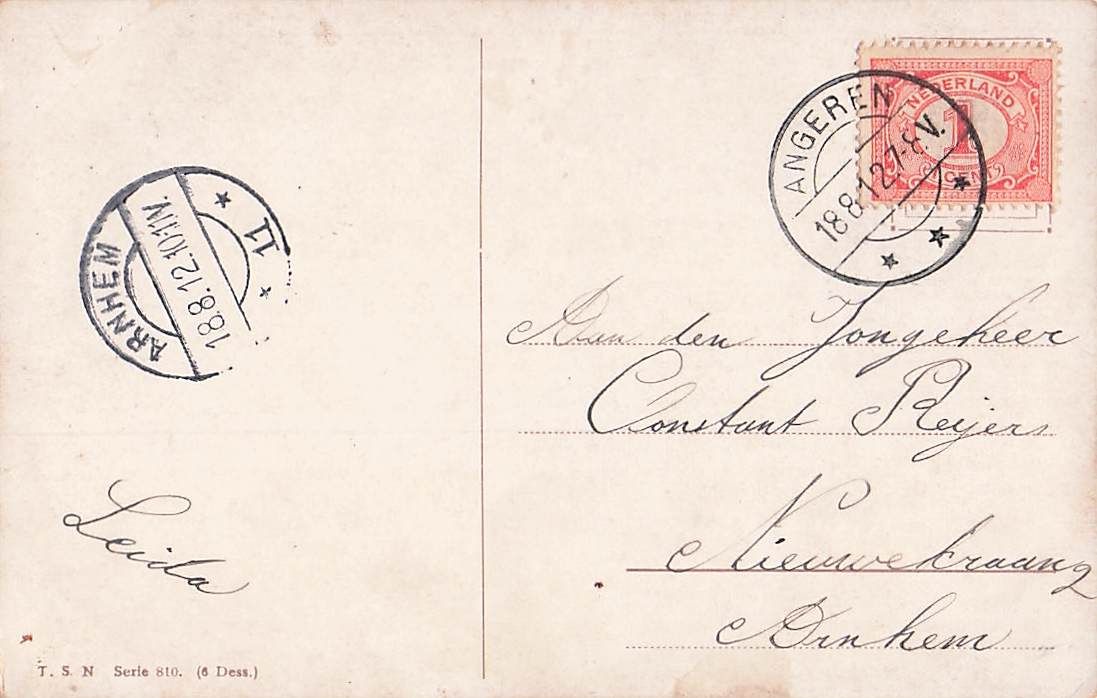 NEDERLAND
1
CENT
ANGEREN
18.8.12.7-8.V.
ARNHEM
18.8.12.10-11V.
11
Aan den Jongeheer
Constant Reijers
Nieuwekraang
Arnhem
Leida
T. S. N Serie 810. (6 Dess.)